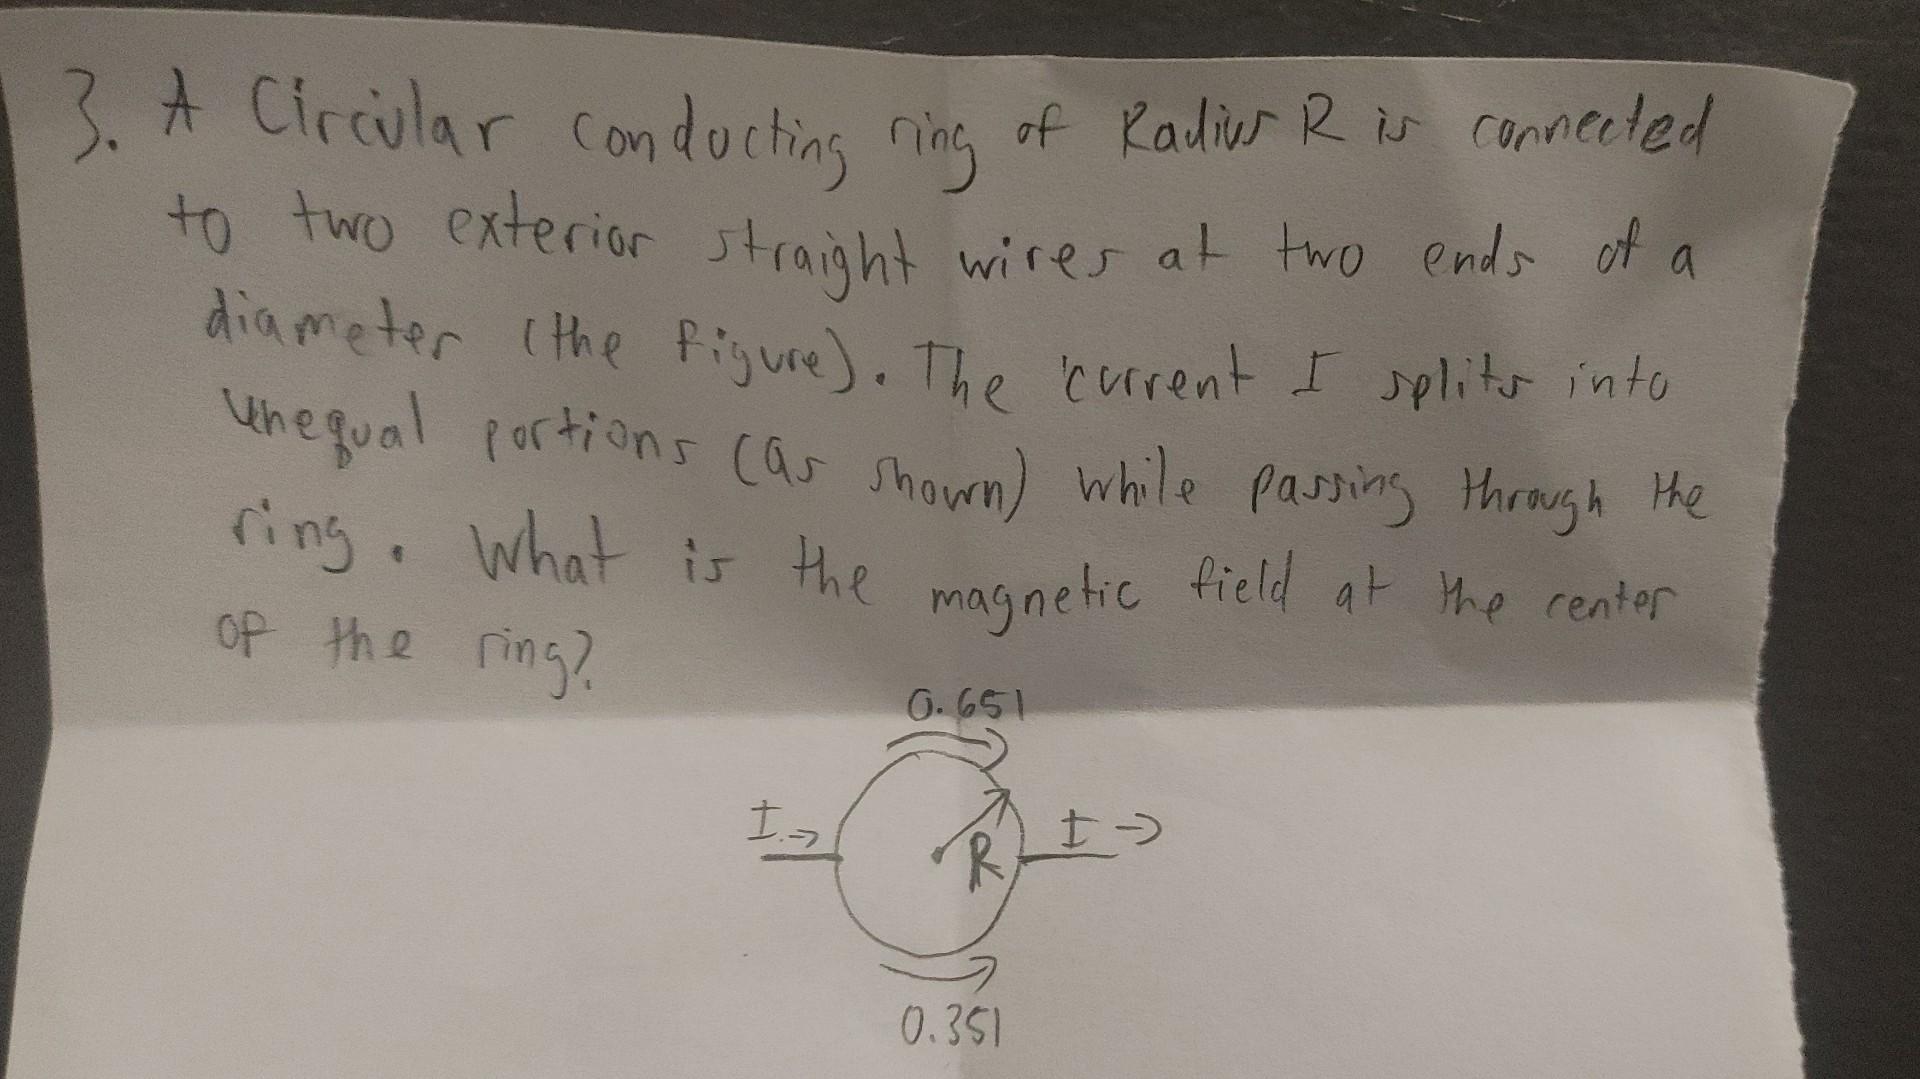 3. A Circular conducting ring of Radius R is connected
to two exterior straight wires at two ends of a
diameter (the figure). The current I splits into
unequal portions (as shown) while passing through the
ring. What is the magnetic field at the center
of the ring?
0.65I
I → I →
R
0.35I